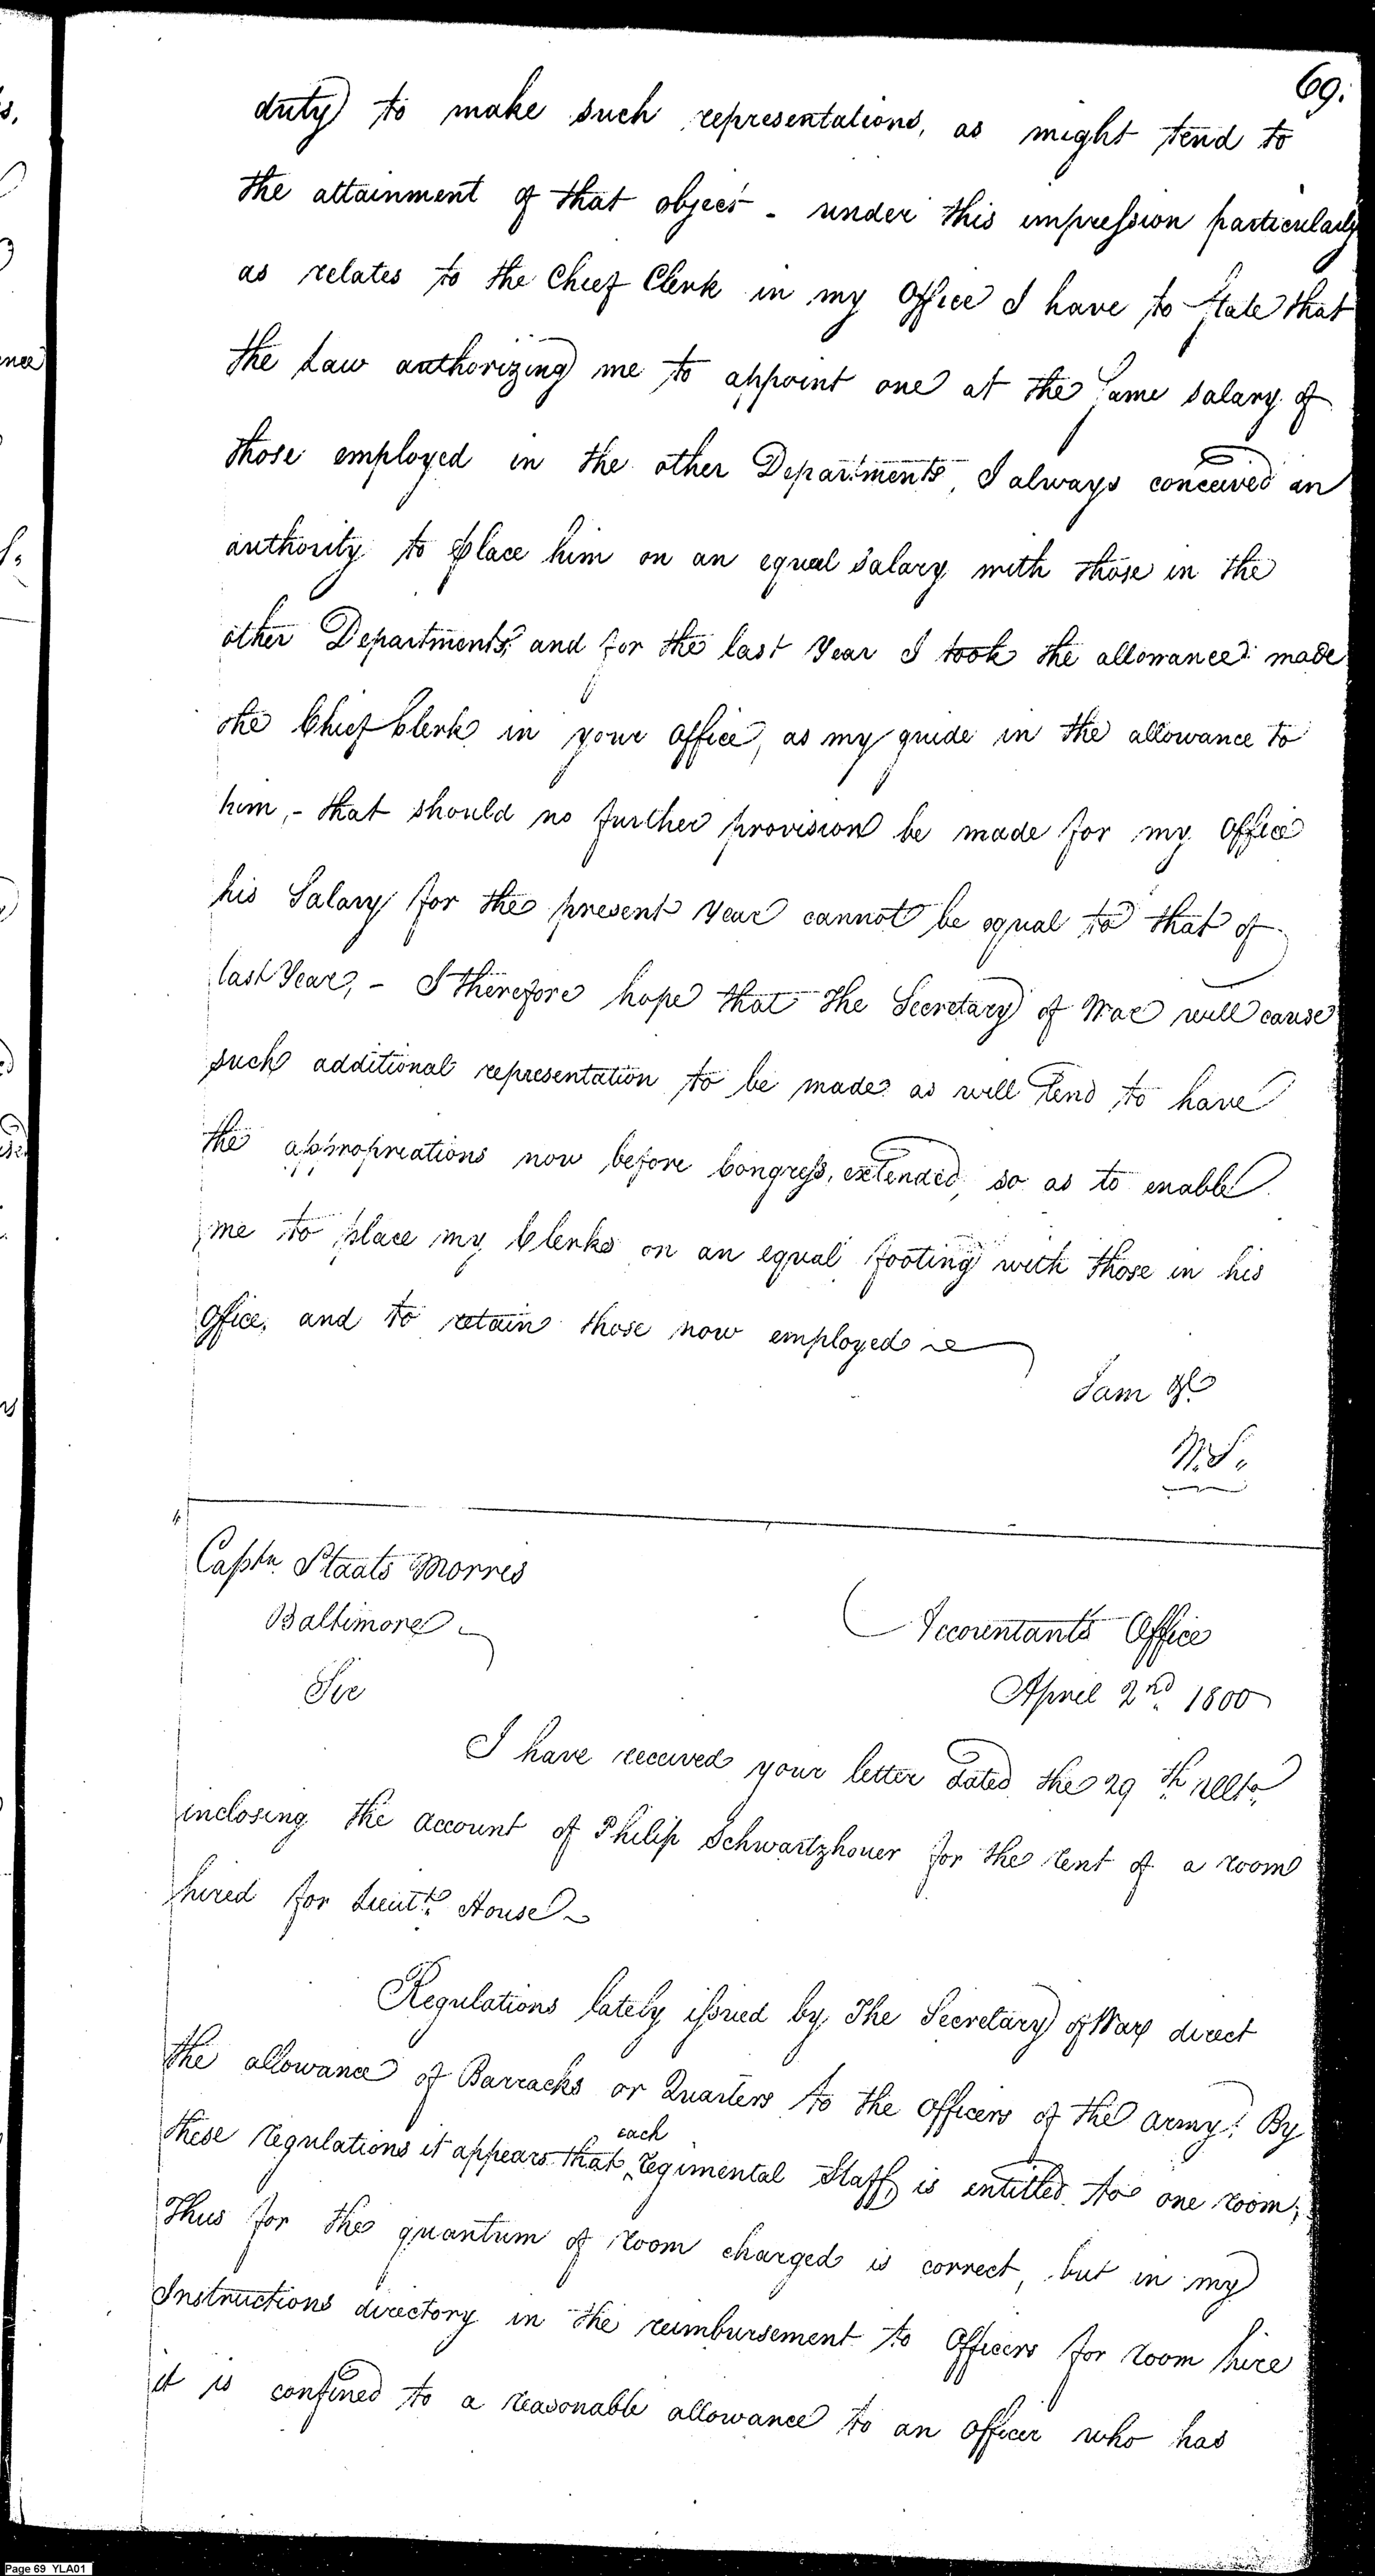 69.
duty to make such representations, as might tend to
the attainment of that object - under this impression particularly
as relates to the Chief Clerk in my Office I have to State that
the Law authorizing me to appoint one at the Same salary of
those employed in the other Departments, I always conceived an
authority to place him on an equal salary with those in the
other Departments, and for the last Year I took the allowance made
the Chief Clerk in your Office, as my guide in the allowance to
him, - that should no further provision be made for my Office
his Salary for the present Year cannot be equal to that of
last Year, - I therefore hope that the Secretary of War will cause
such additional representation to be made as will tend to have
the appropriations now before Congress, extended, so as to enable
me to place my Clerks on an equal footing with those in his
Office, and to retain those now employed
I am &c
W.S.
Captn. Staats Morris
Baltimore
Accountants Office
Sir
April 2nd 1800
I have received your letter dated the 29th Ulto.
inclosing the account of Philip Schwartzhouer for the rent of a room
hired for Lieutt. House
Regulations lately issued by The Secretary of War direct
the allowance of Barracks or Quarters to the officers of the army. By
these regulations it appears that each regimental Staff, is entitled to one room;
Thus for the quantum of room charged is correct, but in my
Instructions directory in the reimbursement to Officers for room hire
it is confined to a reasonable allowance to an officer who has
Page 69 YLA01